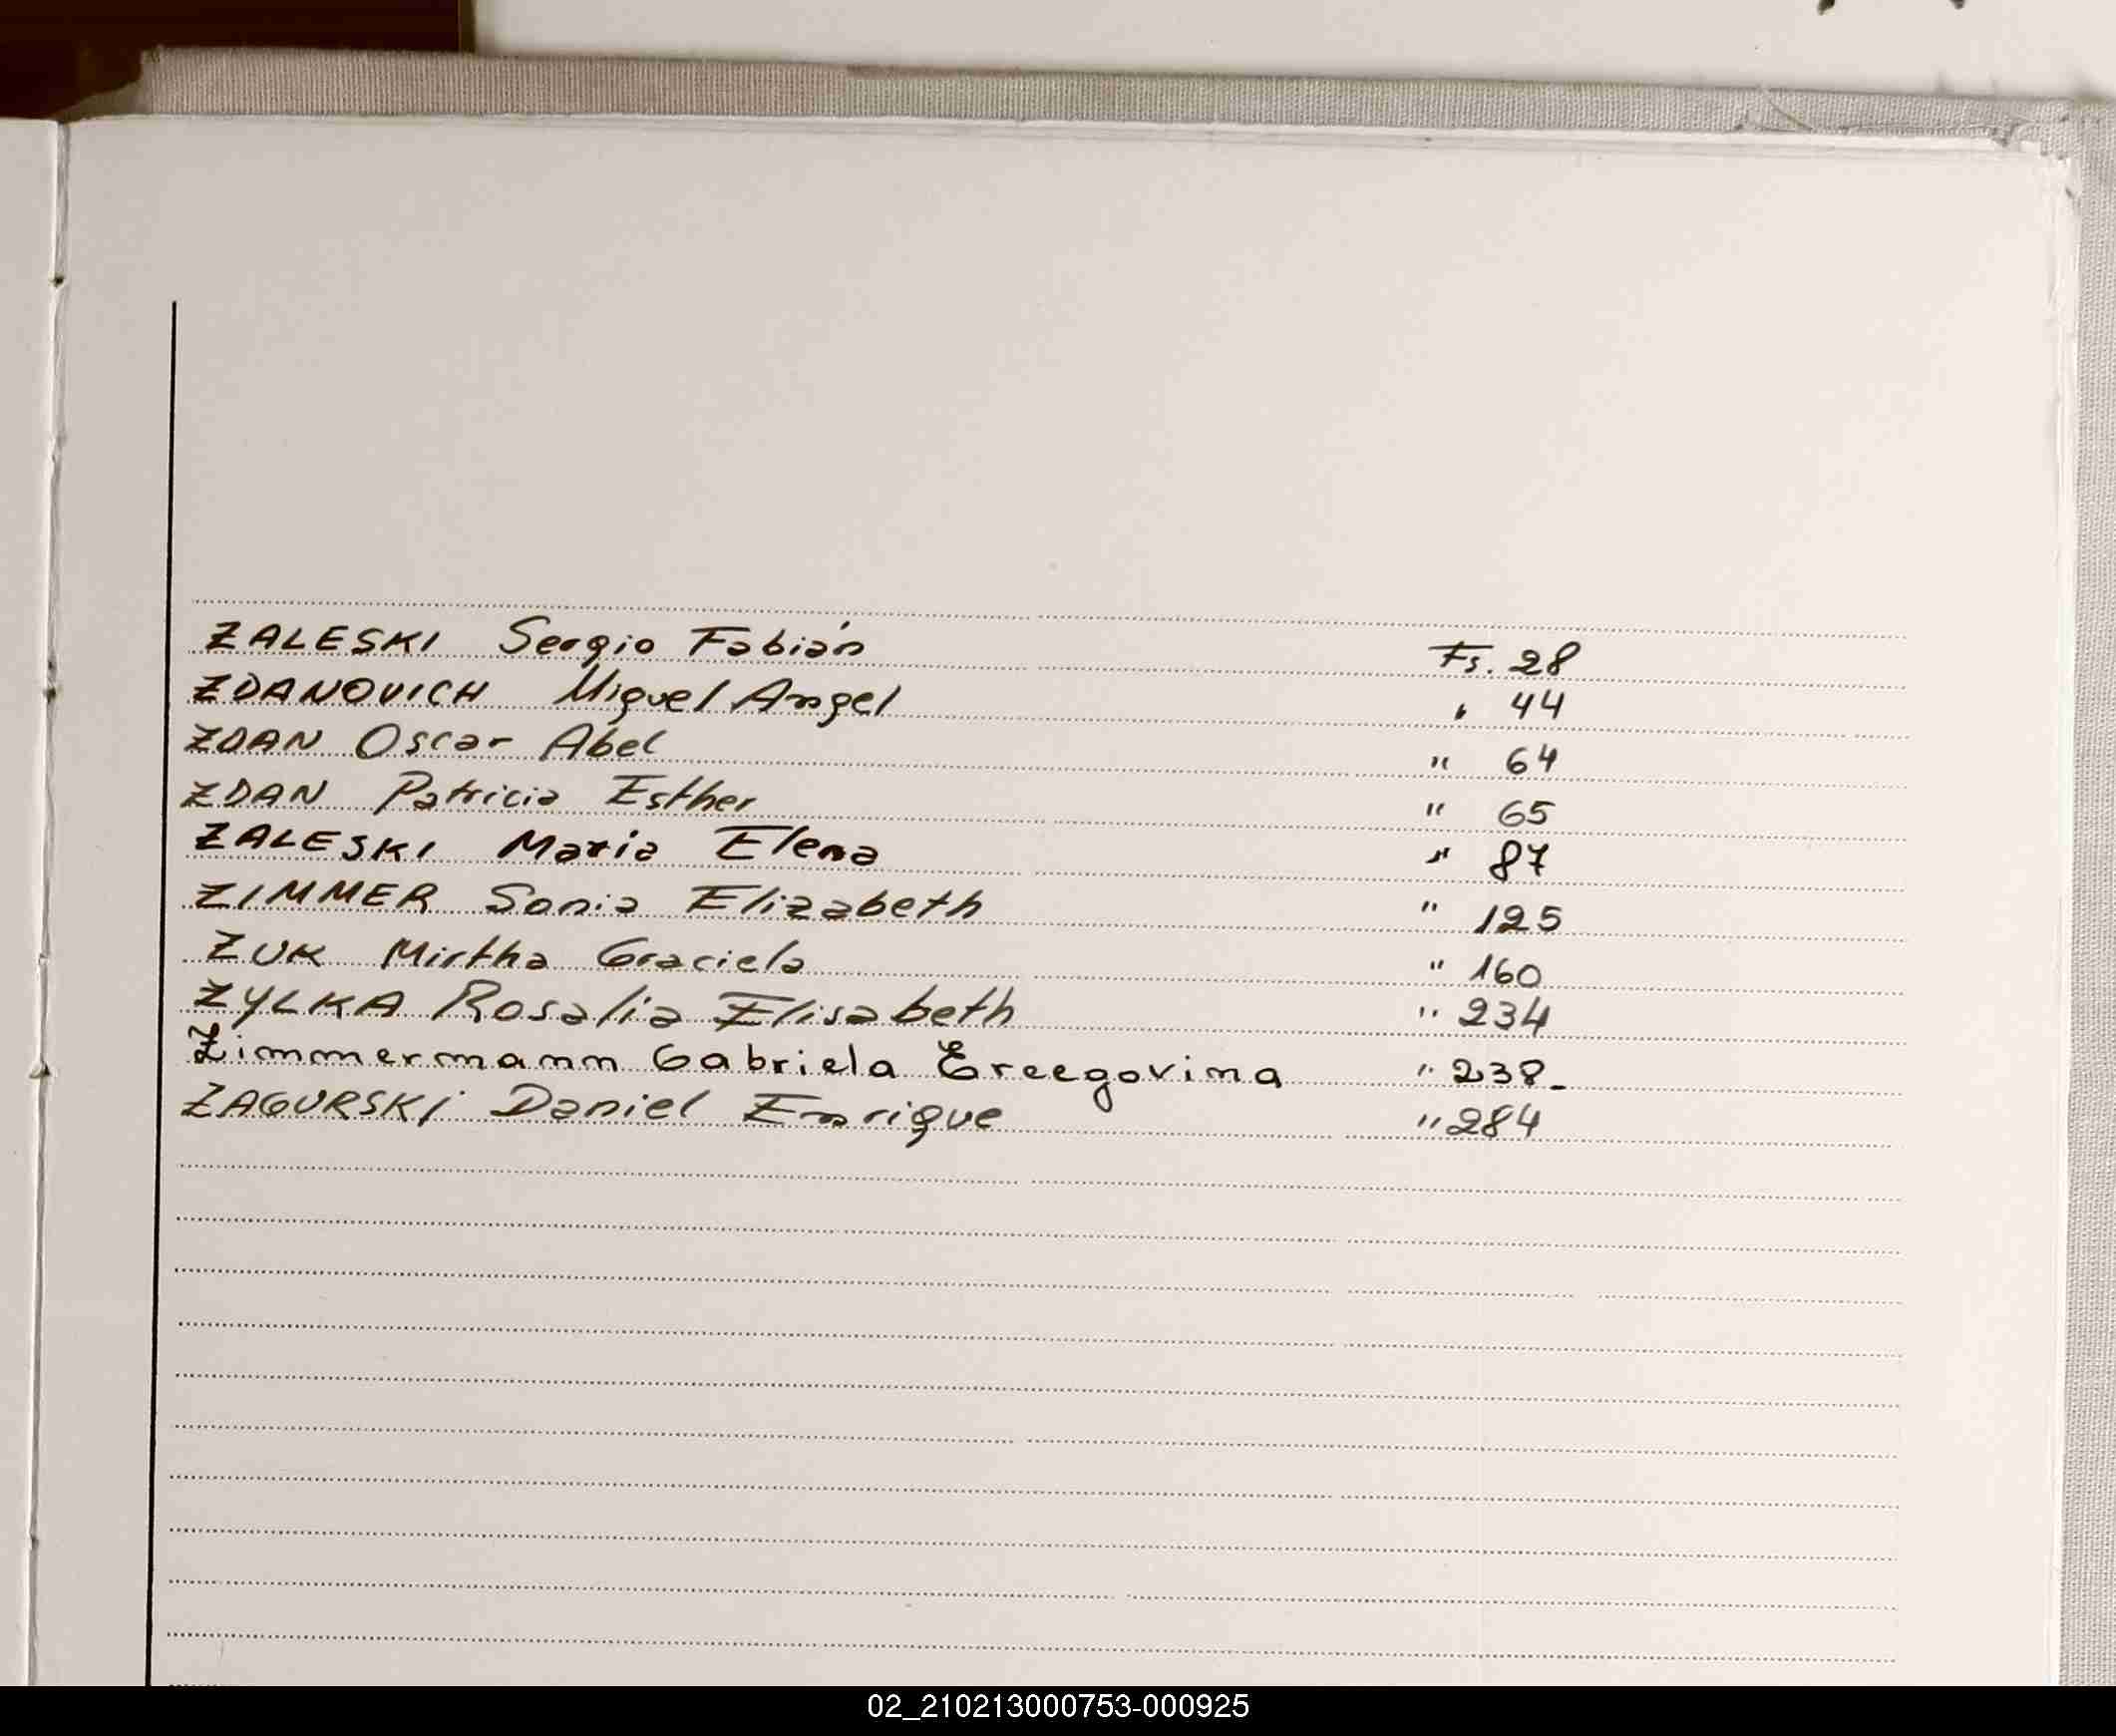 ZALESKI Sergio Fabián Fs. 28
ZDANOVICH Miguel Angel " 44
ZDAN Oscar Abel " 64
ZDAN Patricia Esther " 65
ZALESKI Maria Elena " 87
ZIMMER Sonia Elizabeth " 125
ZUK Mirtha Graciela " 160
ZYLKA Rosalia Elisabeth " 234
Zimmermann Gabriela Ercegovina " 238.
ZAGURSKI Daniel Enrique " 284
02_210213000753-000925